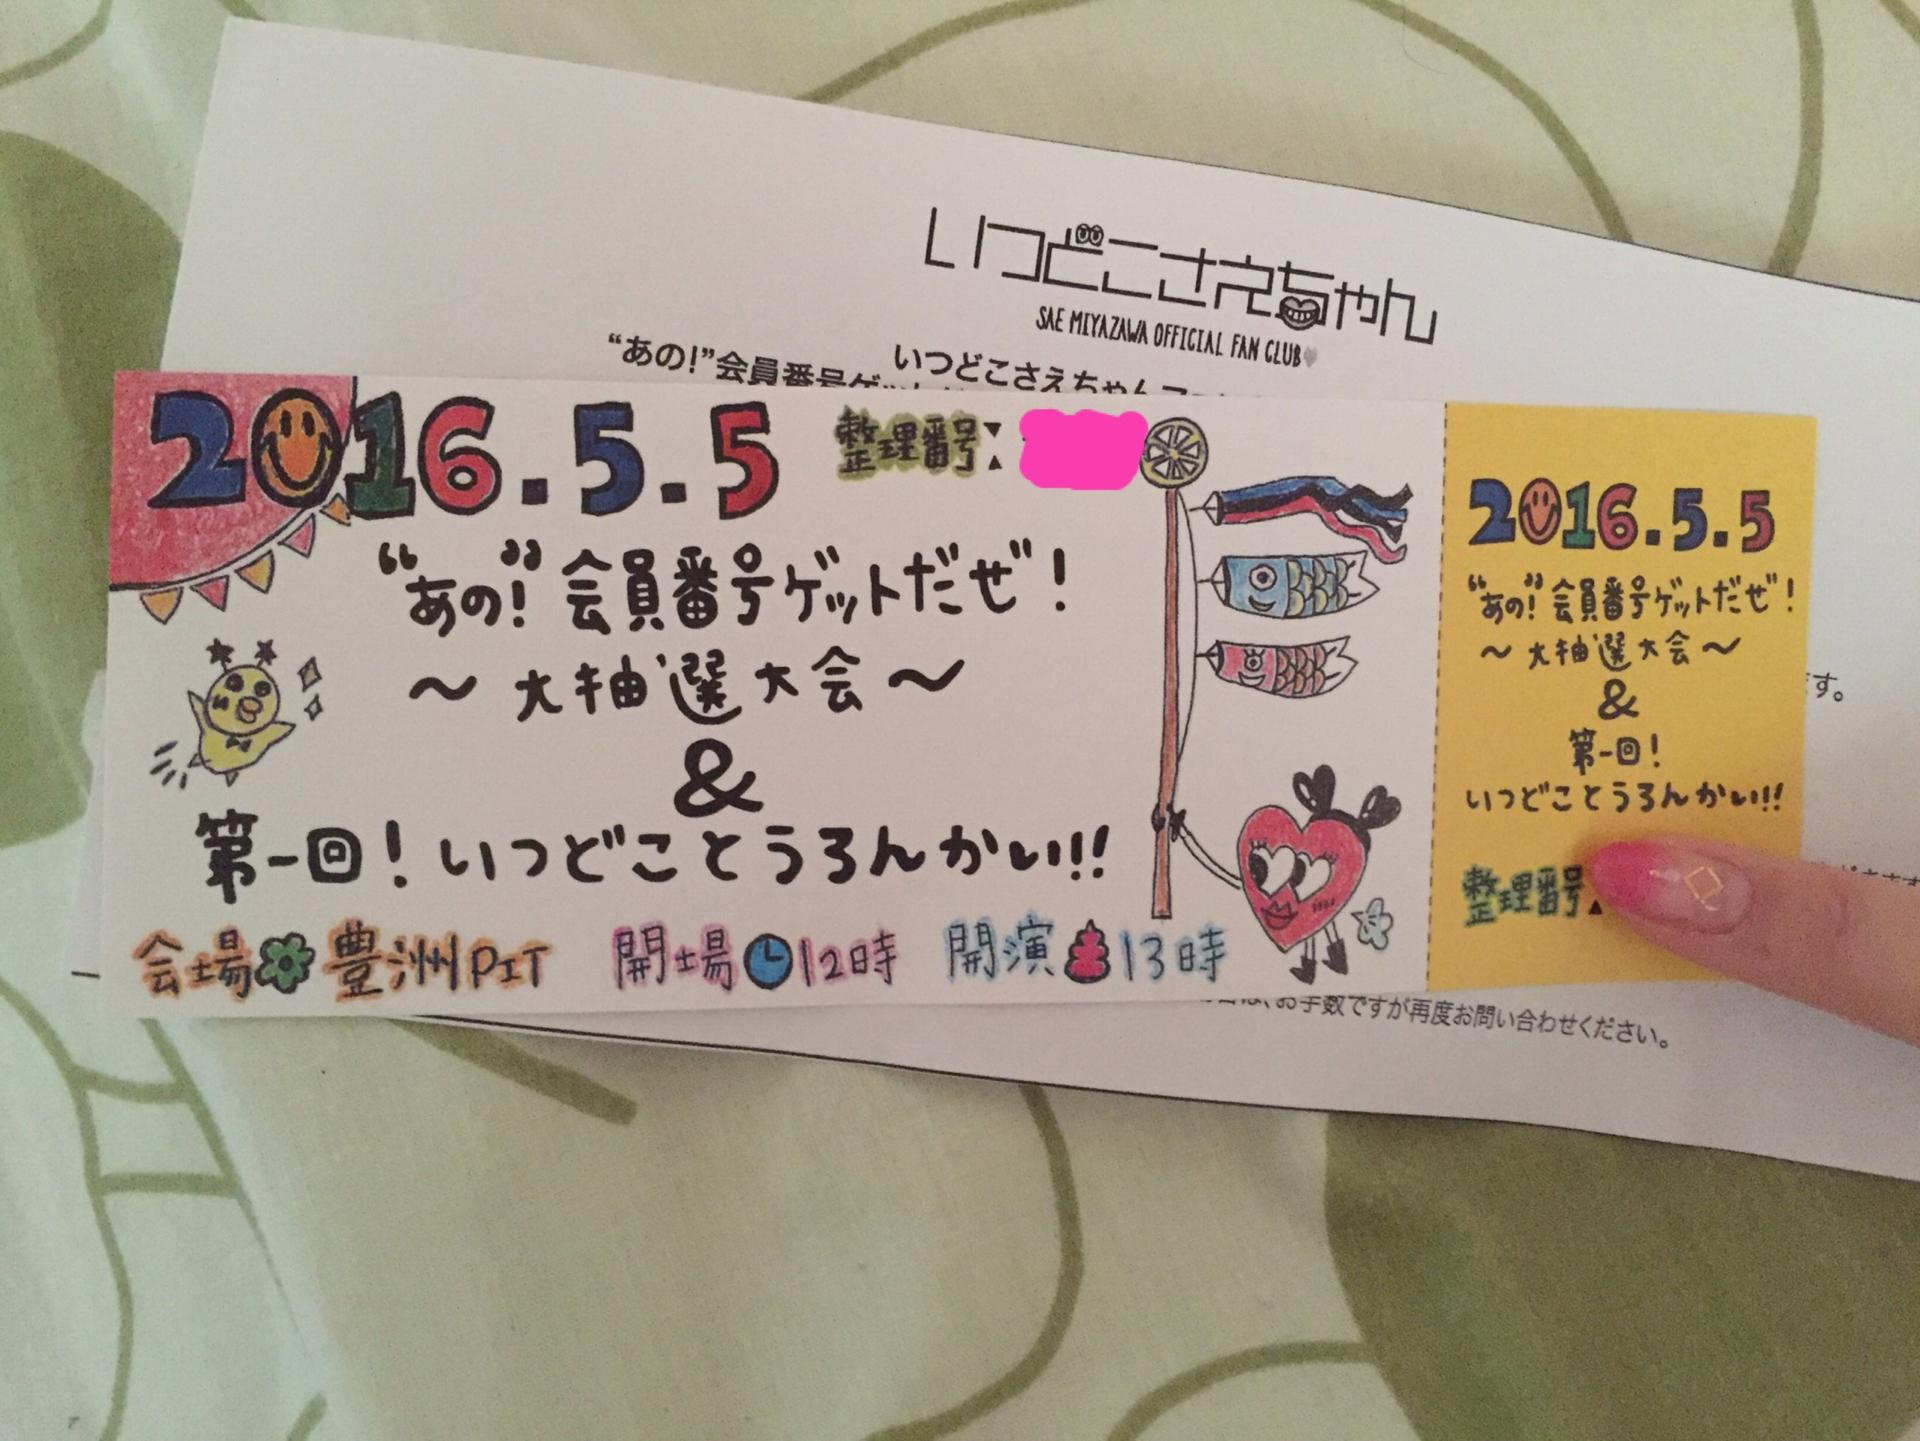 いつどこさえちゃん
SAE MIYAZAWA OFFICIAL FAN CLUB
いつどこさえちゃんファ
“あの!”会員番号ゲット
2016.5.5
整理番号:
“あの!”会員番号ゲットだぜ!
～大抽選大会～
&
第一回!いつどことうろんかい!!
会場 豊洲PIT 開場 12時 開演 13時
2016.5.5
“あの!”会員番号ゲットだぜ!
～大抽選大会～
&
第一回!
いつどことうろんかい!!
整理番号
す。
は、お手数ですが再度お問い合わせください。